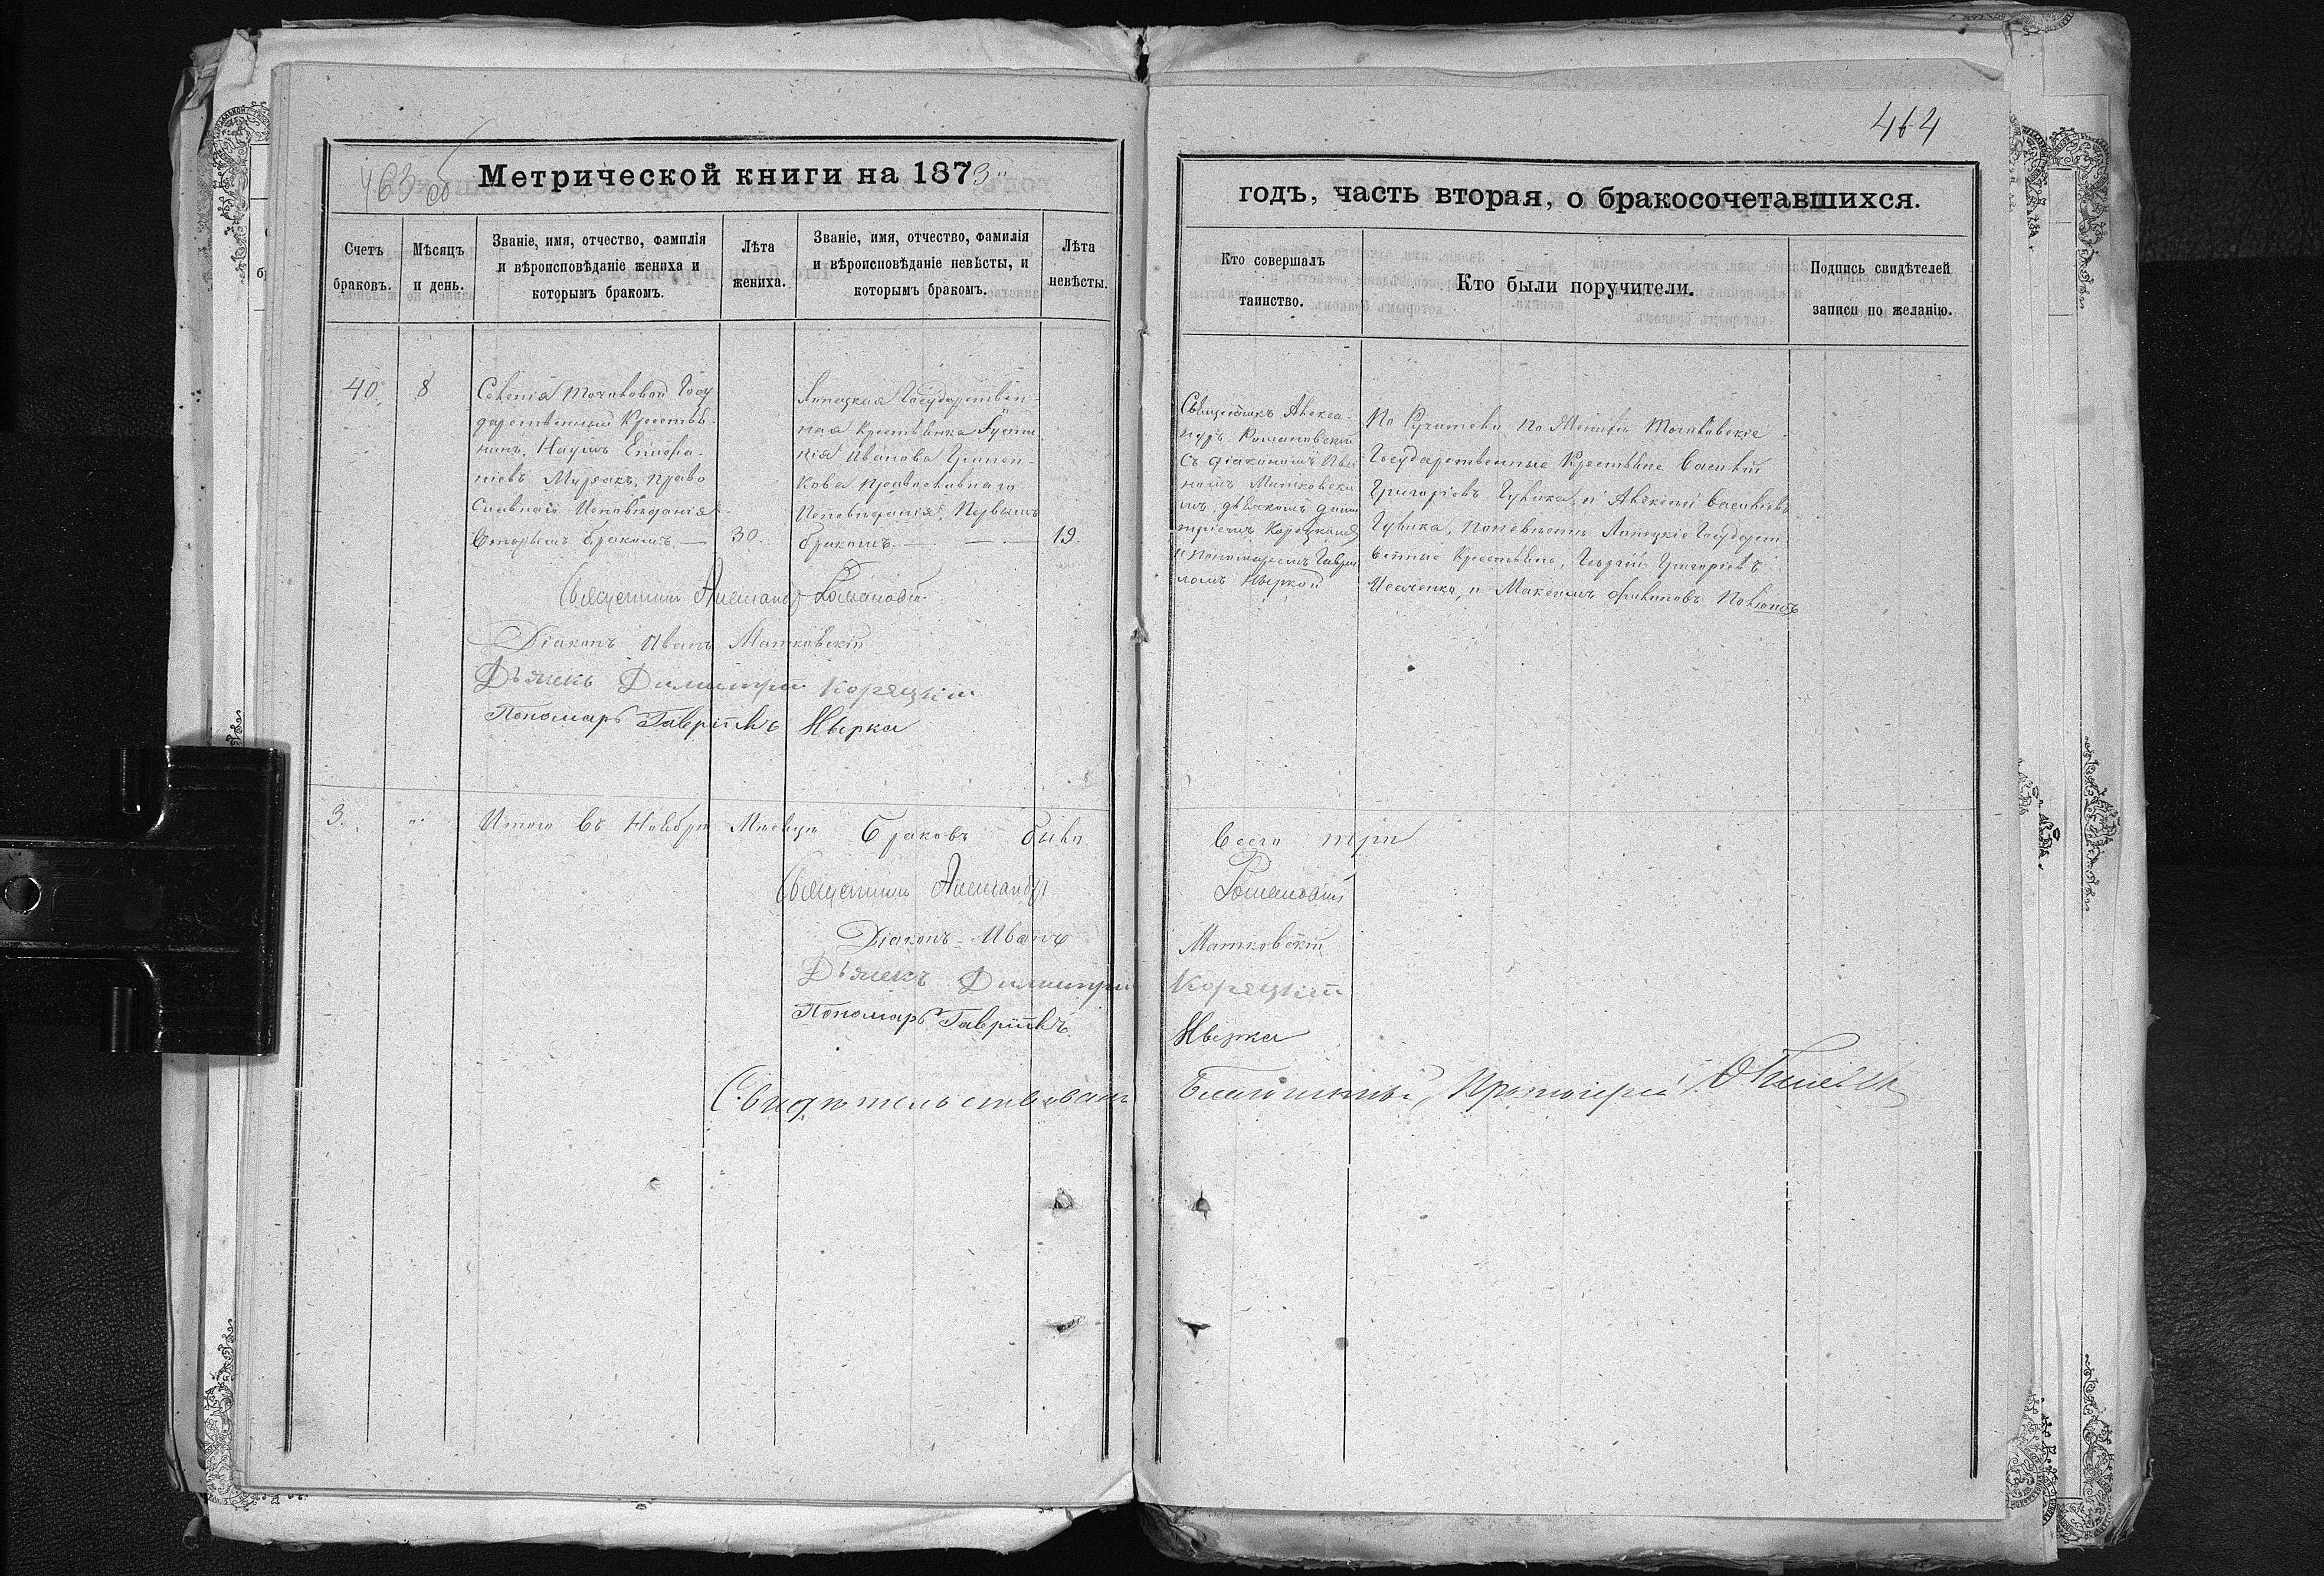 463 об
Метрической книги на 1873
Счетъ браковъ.
Мѣсяцъ и день.
Званіе, имя, отчество, фамилія
и вѣроисповѣданіе жениха и
которымъ бракомъ.
Лѣта жениха.
Званіе, имя, отчество, фамилія
и вѣроисповѣданіе невѣсты, и
которымъ бракомъ.
Лѣта невѣсты.
40.
8
Селенія Госу
дарственный Крестья
нинъ, Наумъ Епифа-
ніевъ право
славнаго Исповѣданія
вторымъ бракомъ.
30.
Липецкая Государствен-
ная Крестьянка
Иванова
Православнаго
Исповѣданія, Первымъ
бракомъ.
19.
Священникъ Александръ Романовскій
Діаконъ Иванъ Матковскій
Дьячекъ Димитрій Корецкій
Пономарь Гавріилъ Нырка
3.
Итого въ Ноябрѣ Мѣсяцѣ браковъ было
Священникъ Александръ
Діаконъ Иванъ
Дьячекъ Димитрій
Пономарь Гавріилъ
Свидѣтельствовалъ
464
годъ, часть вторая, о бракосочетавшихся.
Кто совершалъ
таинство.
Кто были поручители.
Подпись свидѣтелей
записи по желанію.
Священникъ Алекса-
ндръ Романовскій
съ діакономъ Ива
номъ Матковски
мъ, дьячкомъ Дими
тріемъ Корецкимъ
и Пономаремъ Гаврі
ломъ Ныркой
По Женихѣ
Государственные Крестьяне Василій
Григоріевъ и Алексѣй Васильевъ
по невѣстѣ Липецкіе Государст
венные Крестьяне, Георгій Григоріевъ
Исаченко, и Максимъ
всего три
Романовскій
Матковскій
Корецкій
Нырка
Благочинный, Протоіерей